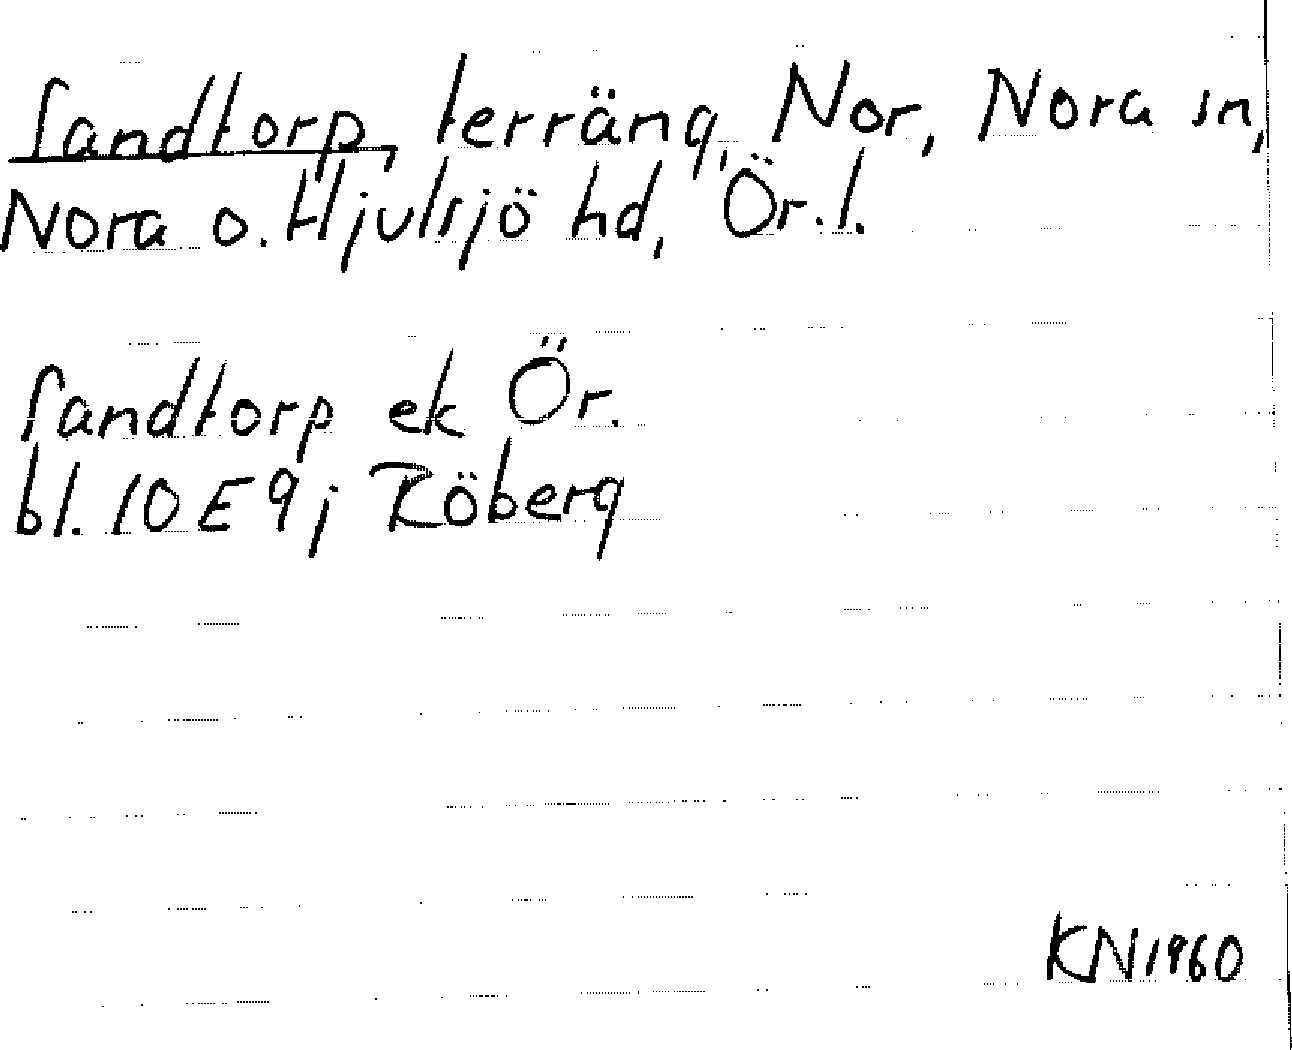 Sandtorp, terräng, Nor, Nora sn,
Nora o. Hjulsjö hd, Ör. l.
Sandtorp ek Ör.
bl. 10 E 9 j Röberg
KN 1960